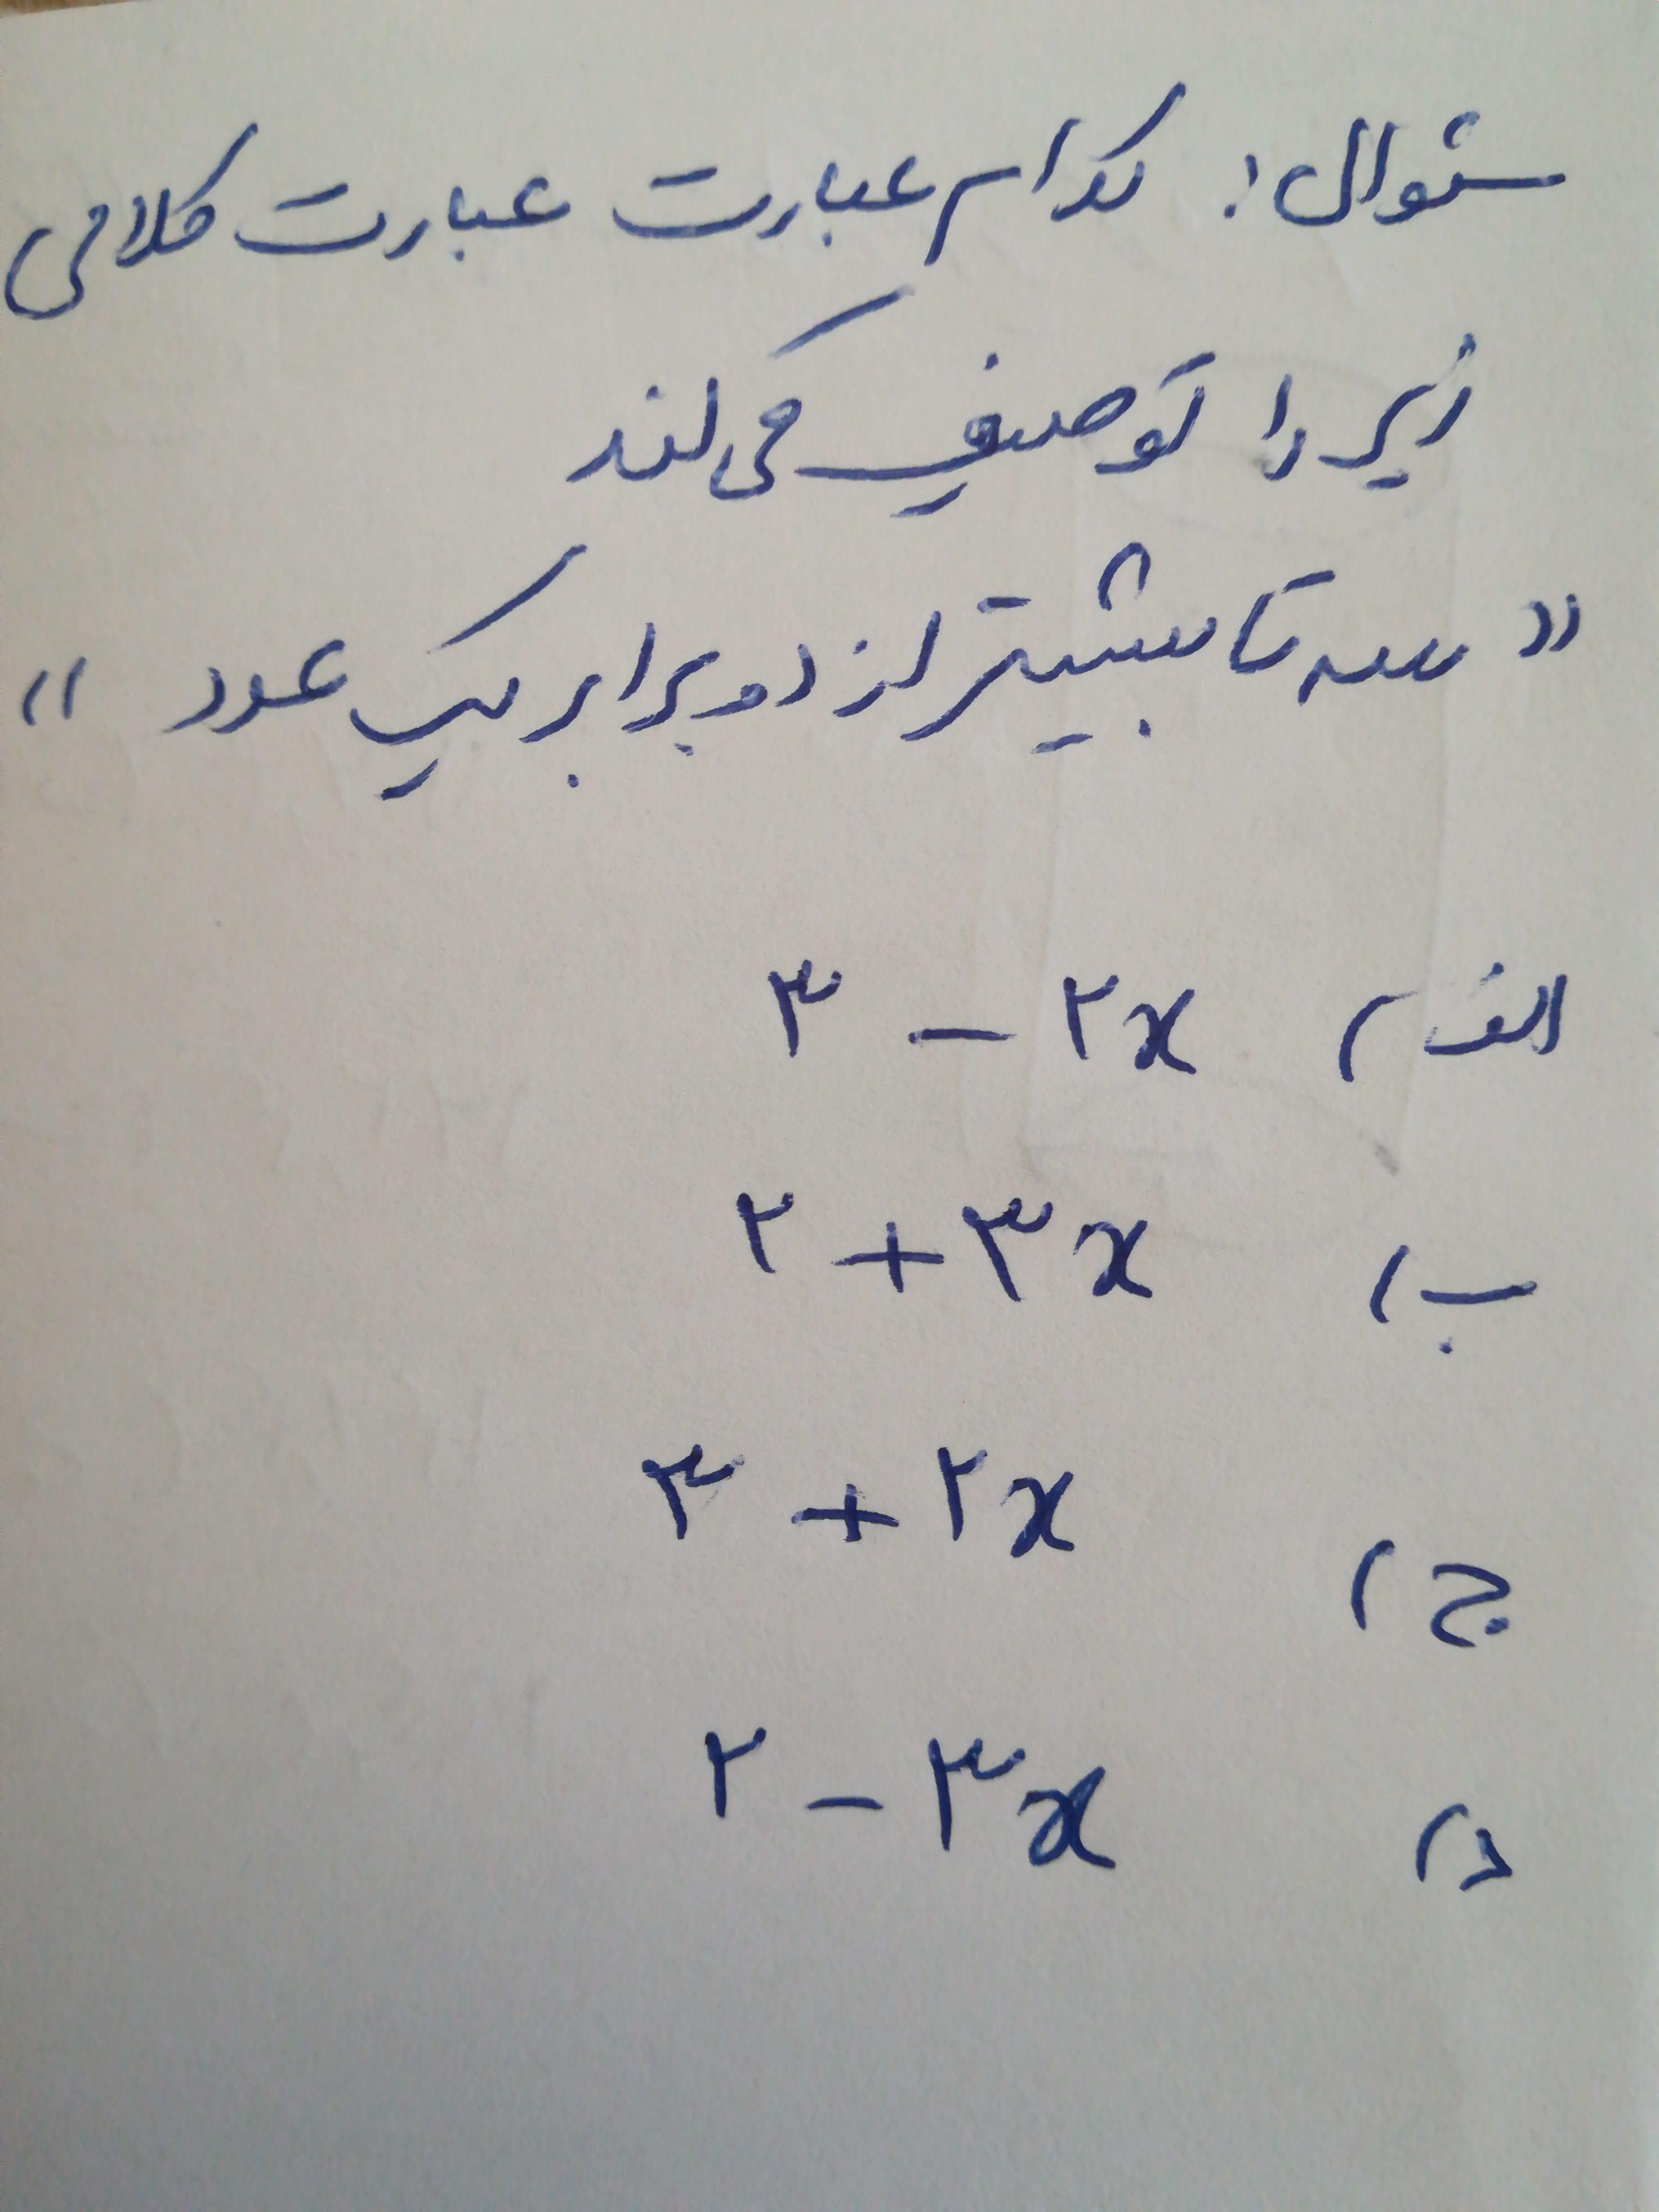 سئوال: کدام عبارت عبارت کلامی
زیر را توصیف می کند
« سه تا بیشتر از دو برابر یک عدد »
الف) ۳ - ۲x
ب) ۲ + ۳x
ج) ۳ + ۲x
د) ۲ - ۳x